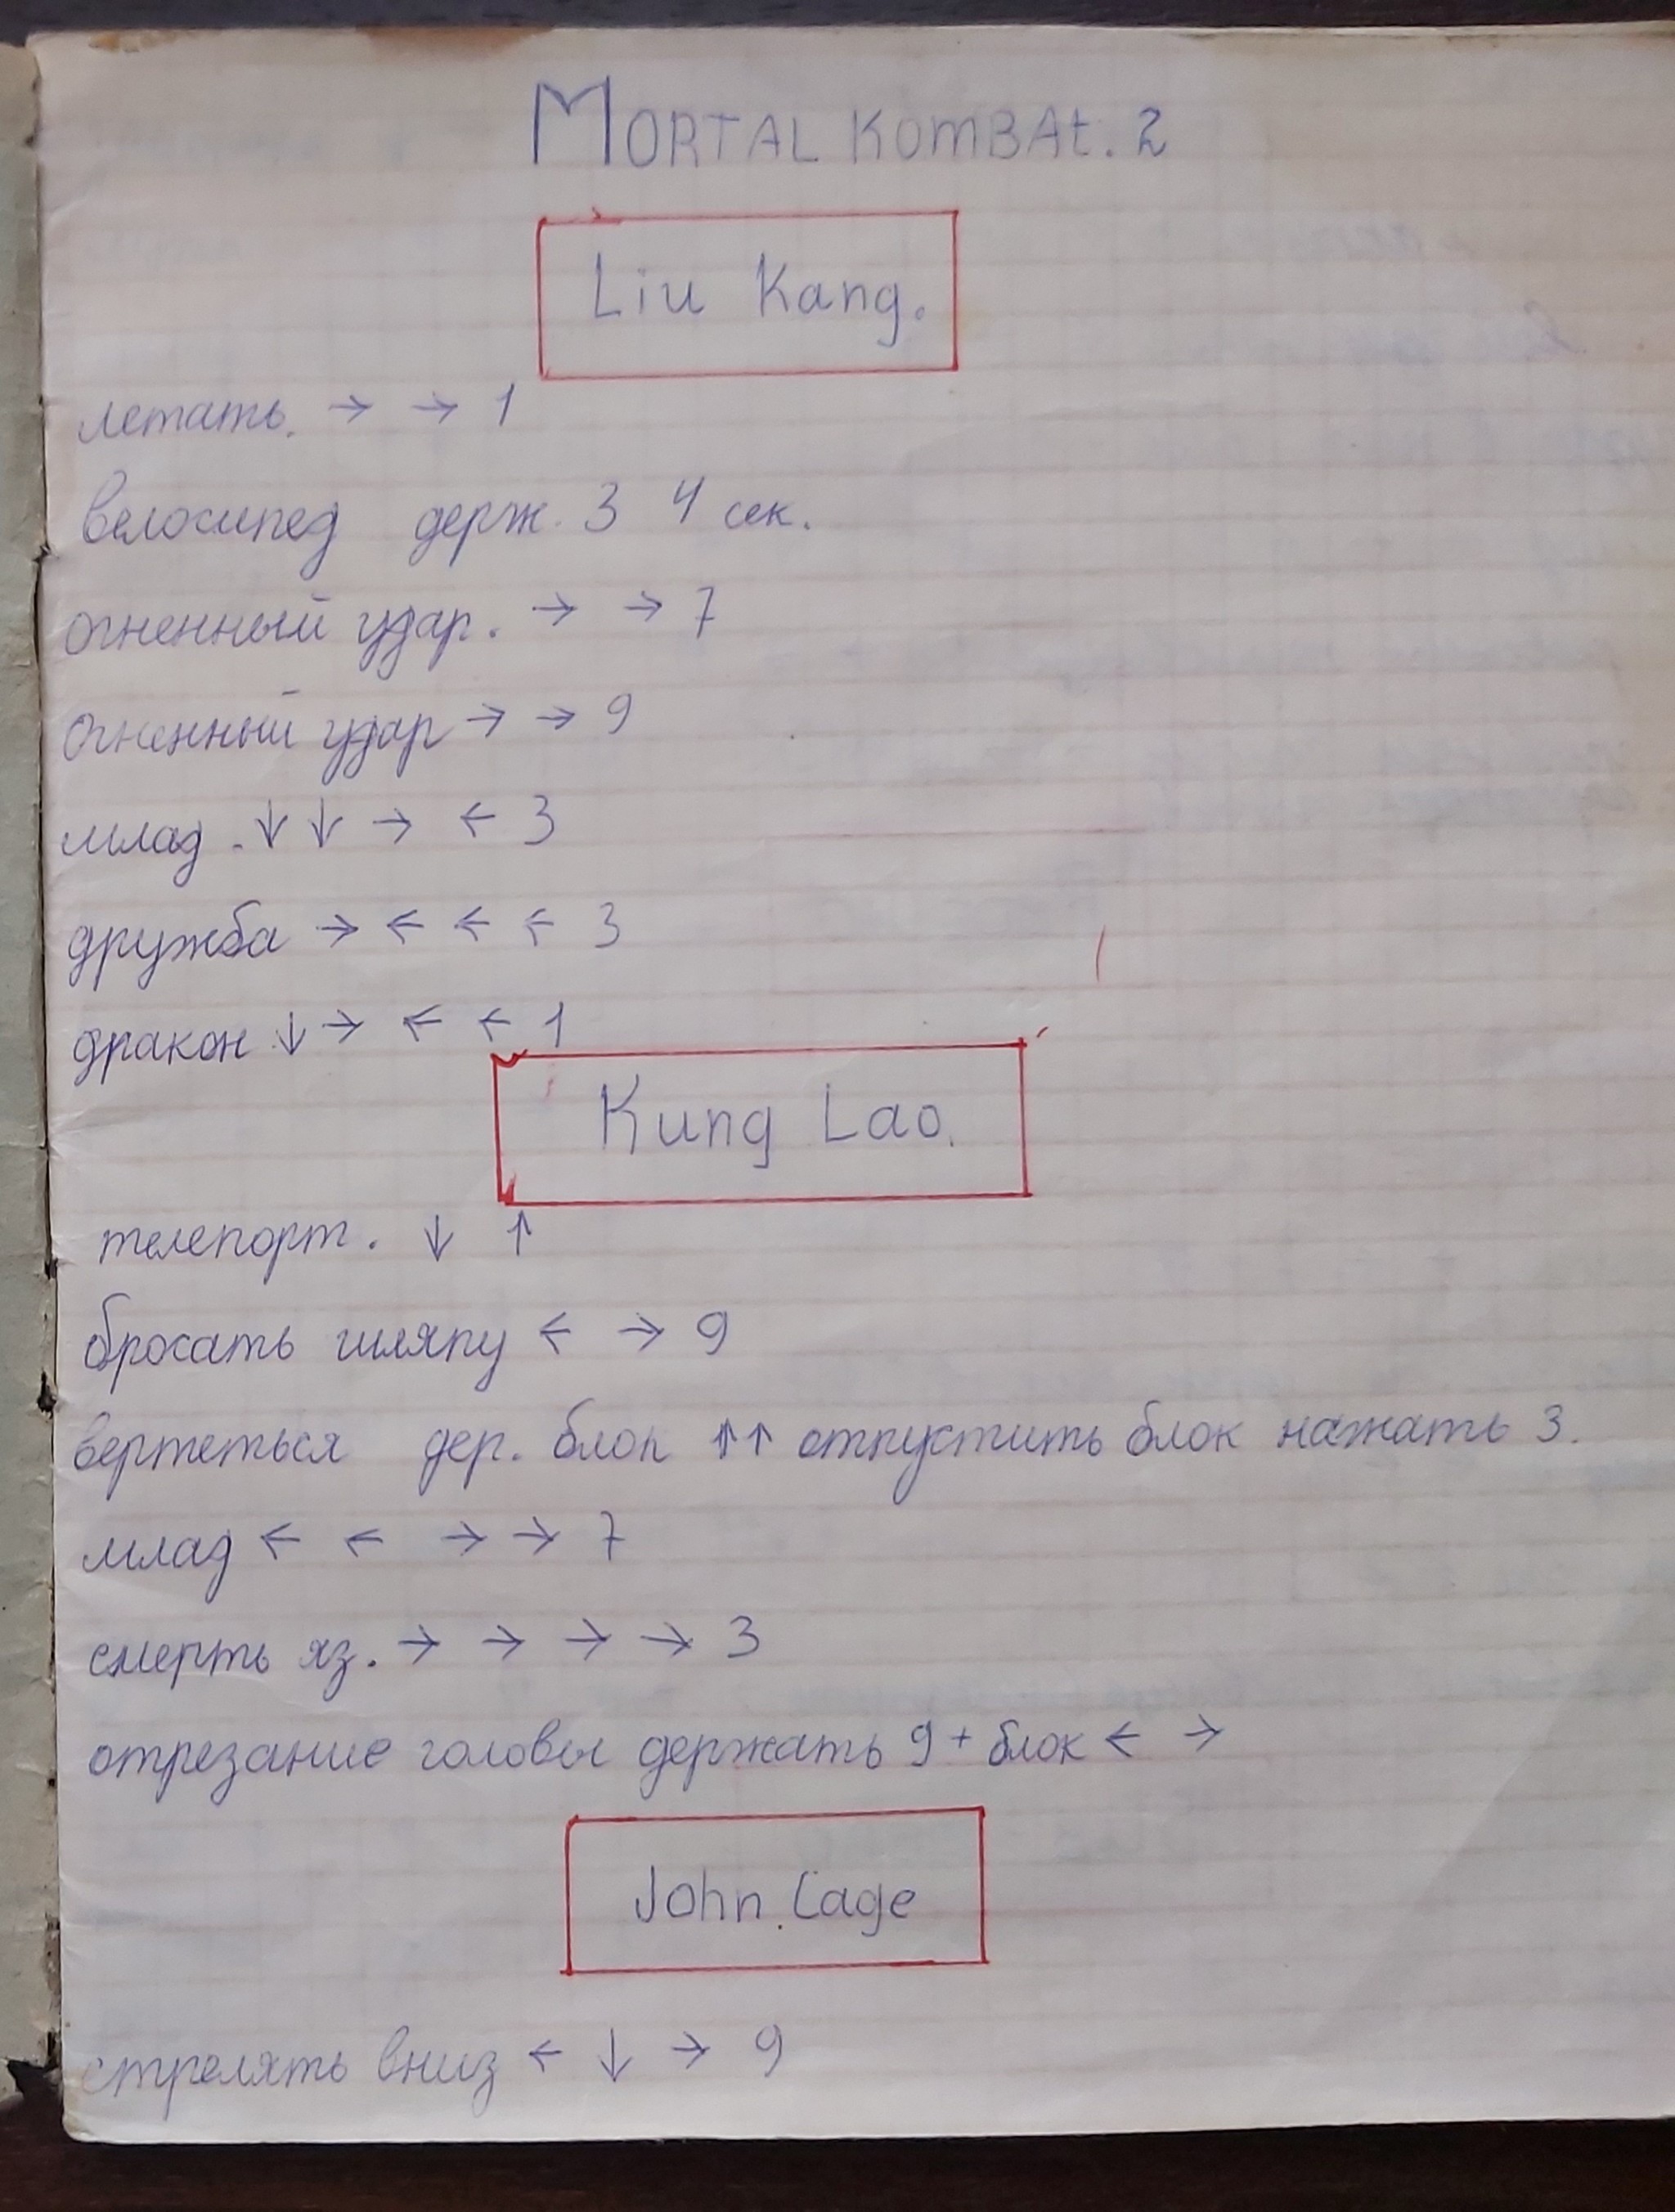 MORTAL KOMBAt. 2
Liu Kang.
летать. → → 1
велосипед держ. 3 4 сек.
огненный удар. → → 7
огненный удар → → 9
млад. ↓ ↓ → ← 3
дружба → ← ← ← 3
дракон ↓ → ← ← 1
Kung Lao.
телепорт. ↓ ↑
бросать шляпу ← → 9
вертеться дер. блок ↑↑ отпустить блок нажать 3.
млад ← ← → → 7
смерть яз. → → → → 3
отрезание головы держать 9 + блок ← →
John Cage
стрелять вниз ← ↓ → 9